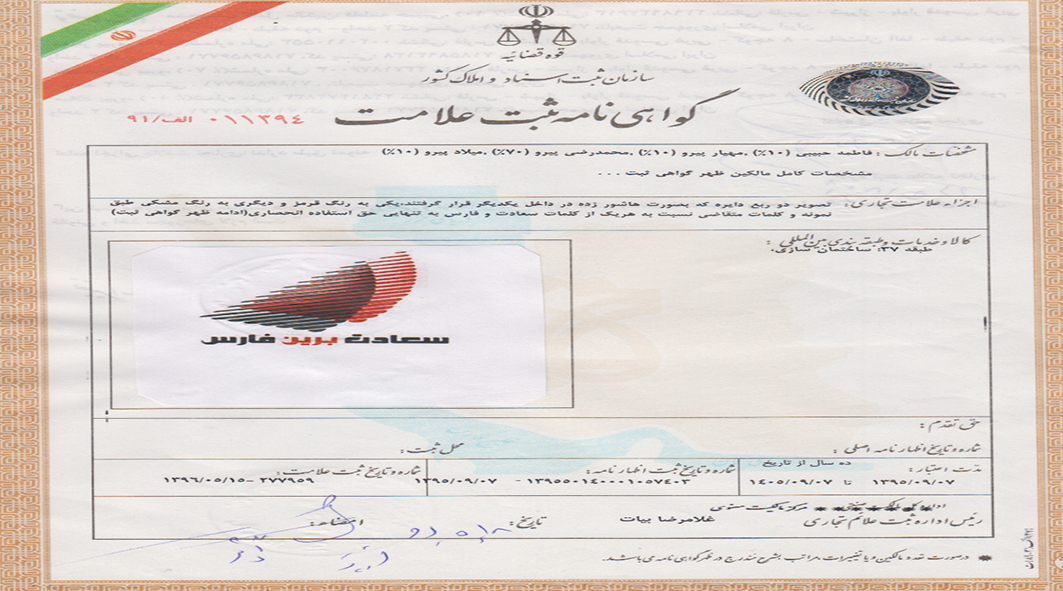 قوه قضائیه
سازمان ثبت اسناد و املاک کشور
گواهی نامه ثبت علامت
۰۱۱۳۹۴ الف/۹۱
مشخصات مالک : فاطمه حبیبی (۱۰٪) ,مهیار پیرو (۱۰٪) ,محمدرضی پیرو (۷۰٪) ,میلاد پیرو (۱۰٪)
مشخصات کامل مالکین ظهر گواهی ثبت ...
اجزاء علامت تجاری : تصویر دو ربع دایره که بصورت هاشور زده در داخل یکدیگر قرار گرفتند،یکی به رنگ قرمز و دیگری به رنگ مشکی طبق
نمونه و کلمات متقاضی نسبت به هریک از کلمات سعادت و فارس به تنهایی حق استفاده انحصاری(ادامه ظهر گواهی ثبت)
کالا و خدمات و طبقه بندی بین المللی :
طبقه ۳۷: ساختمان سازی.
سعادت برین فارس
حق تقدم :
شماره و تاریخ اظهار نامه اصلی : محل ثبت :
مدت اعتبار : ده سال از تاریخ
۱۳۹۵/۰۹/۰۷ تا ۱۴۰۵/۰۹/۰۷
شماره و تاریخ ثبت اظهار نامه :
۱۳۹۵۵۰۱۴۰۰۰۱۰۵۷۴۰۳ - ۱۳۹۵/۰۹/۰۷
شماره و تاریخ ثبت علامت :
۲۷۷۹۵۹ - ۱۳۹۶/۰۵/۱۵
مرکز مالکیت معنوی
رئیس اداره ثبت علائم تجاری غلامرضا بیات تاریخ : امضاء :
در صورت تعدد مالکین و یا تغییرات مراتب بشرح مندرج در ظهر گواهی نامه می باشد.